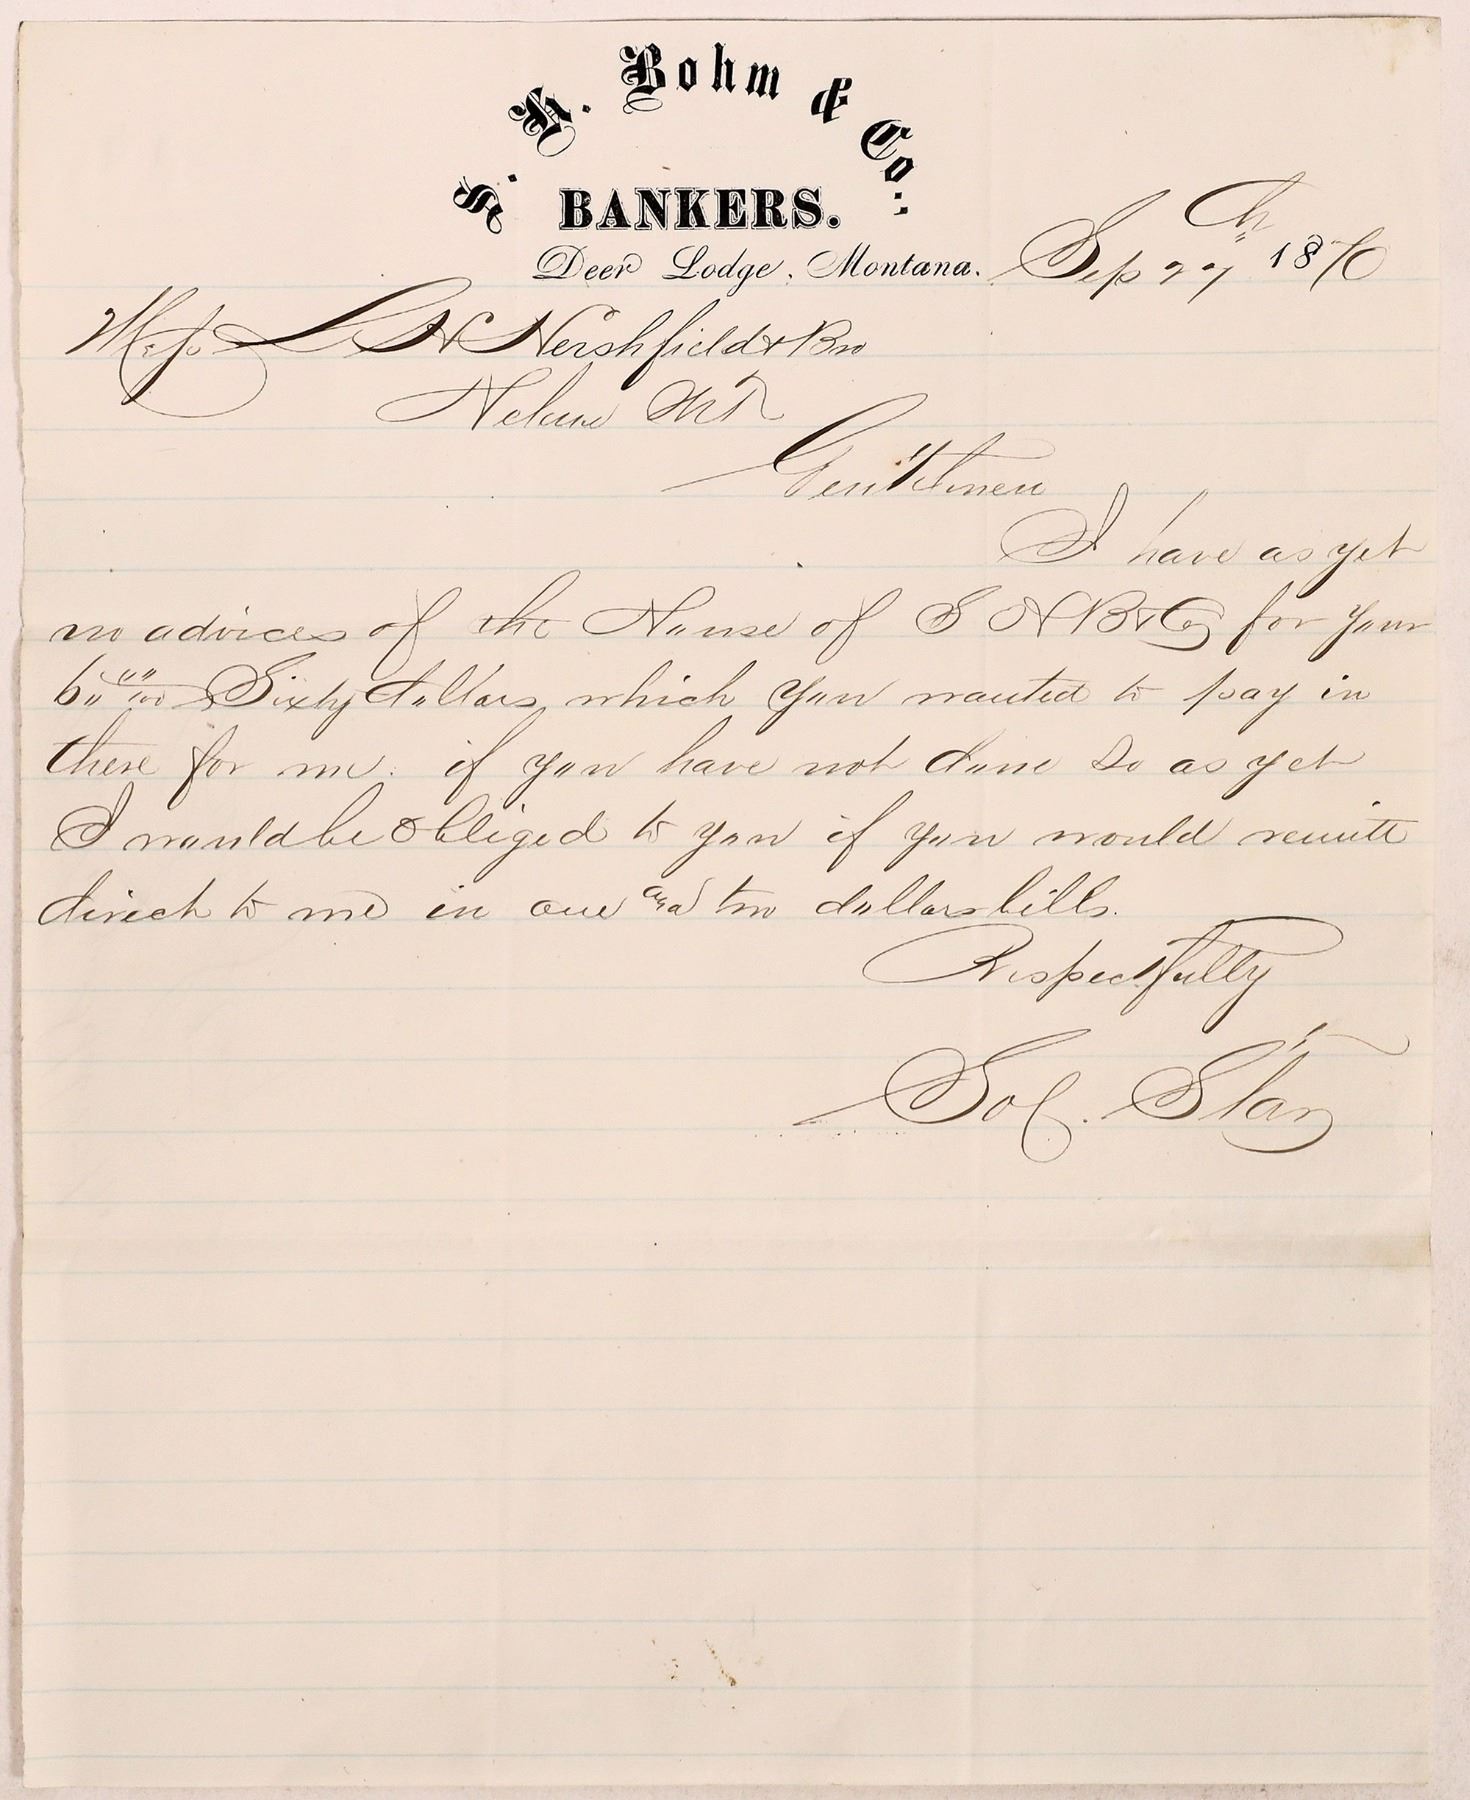 S. H. Bohm & Co.:
BANKERS.
Deer Lodge, Montana. Sep 27th 1870
Mess L H Hershfield & Bro
Helena MT
Gentlemen
I have as yet
no advices of the House of S H B & Co for your
60 00/100 Sixty dollars which you wanted to pay in
there for me. if you have not done so as yet
I would be obliged to you if you would remitt
direct to me in one and two dollars bills.
Respectfully
Sol. Star